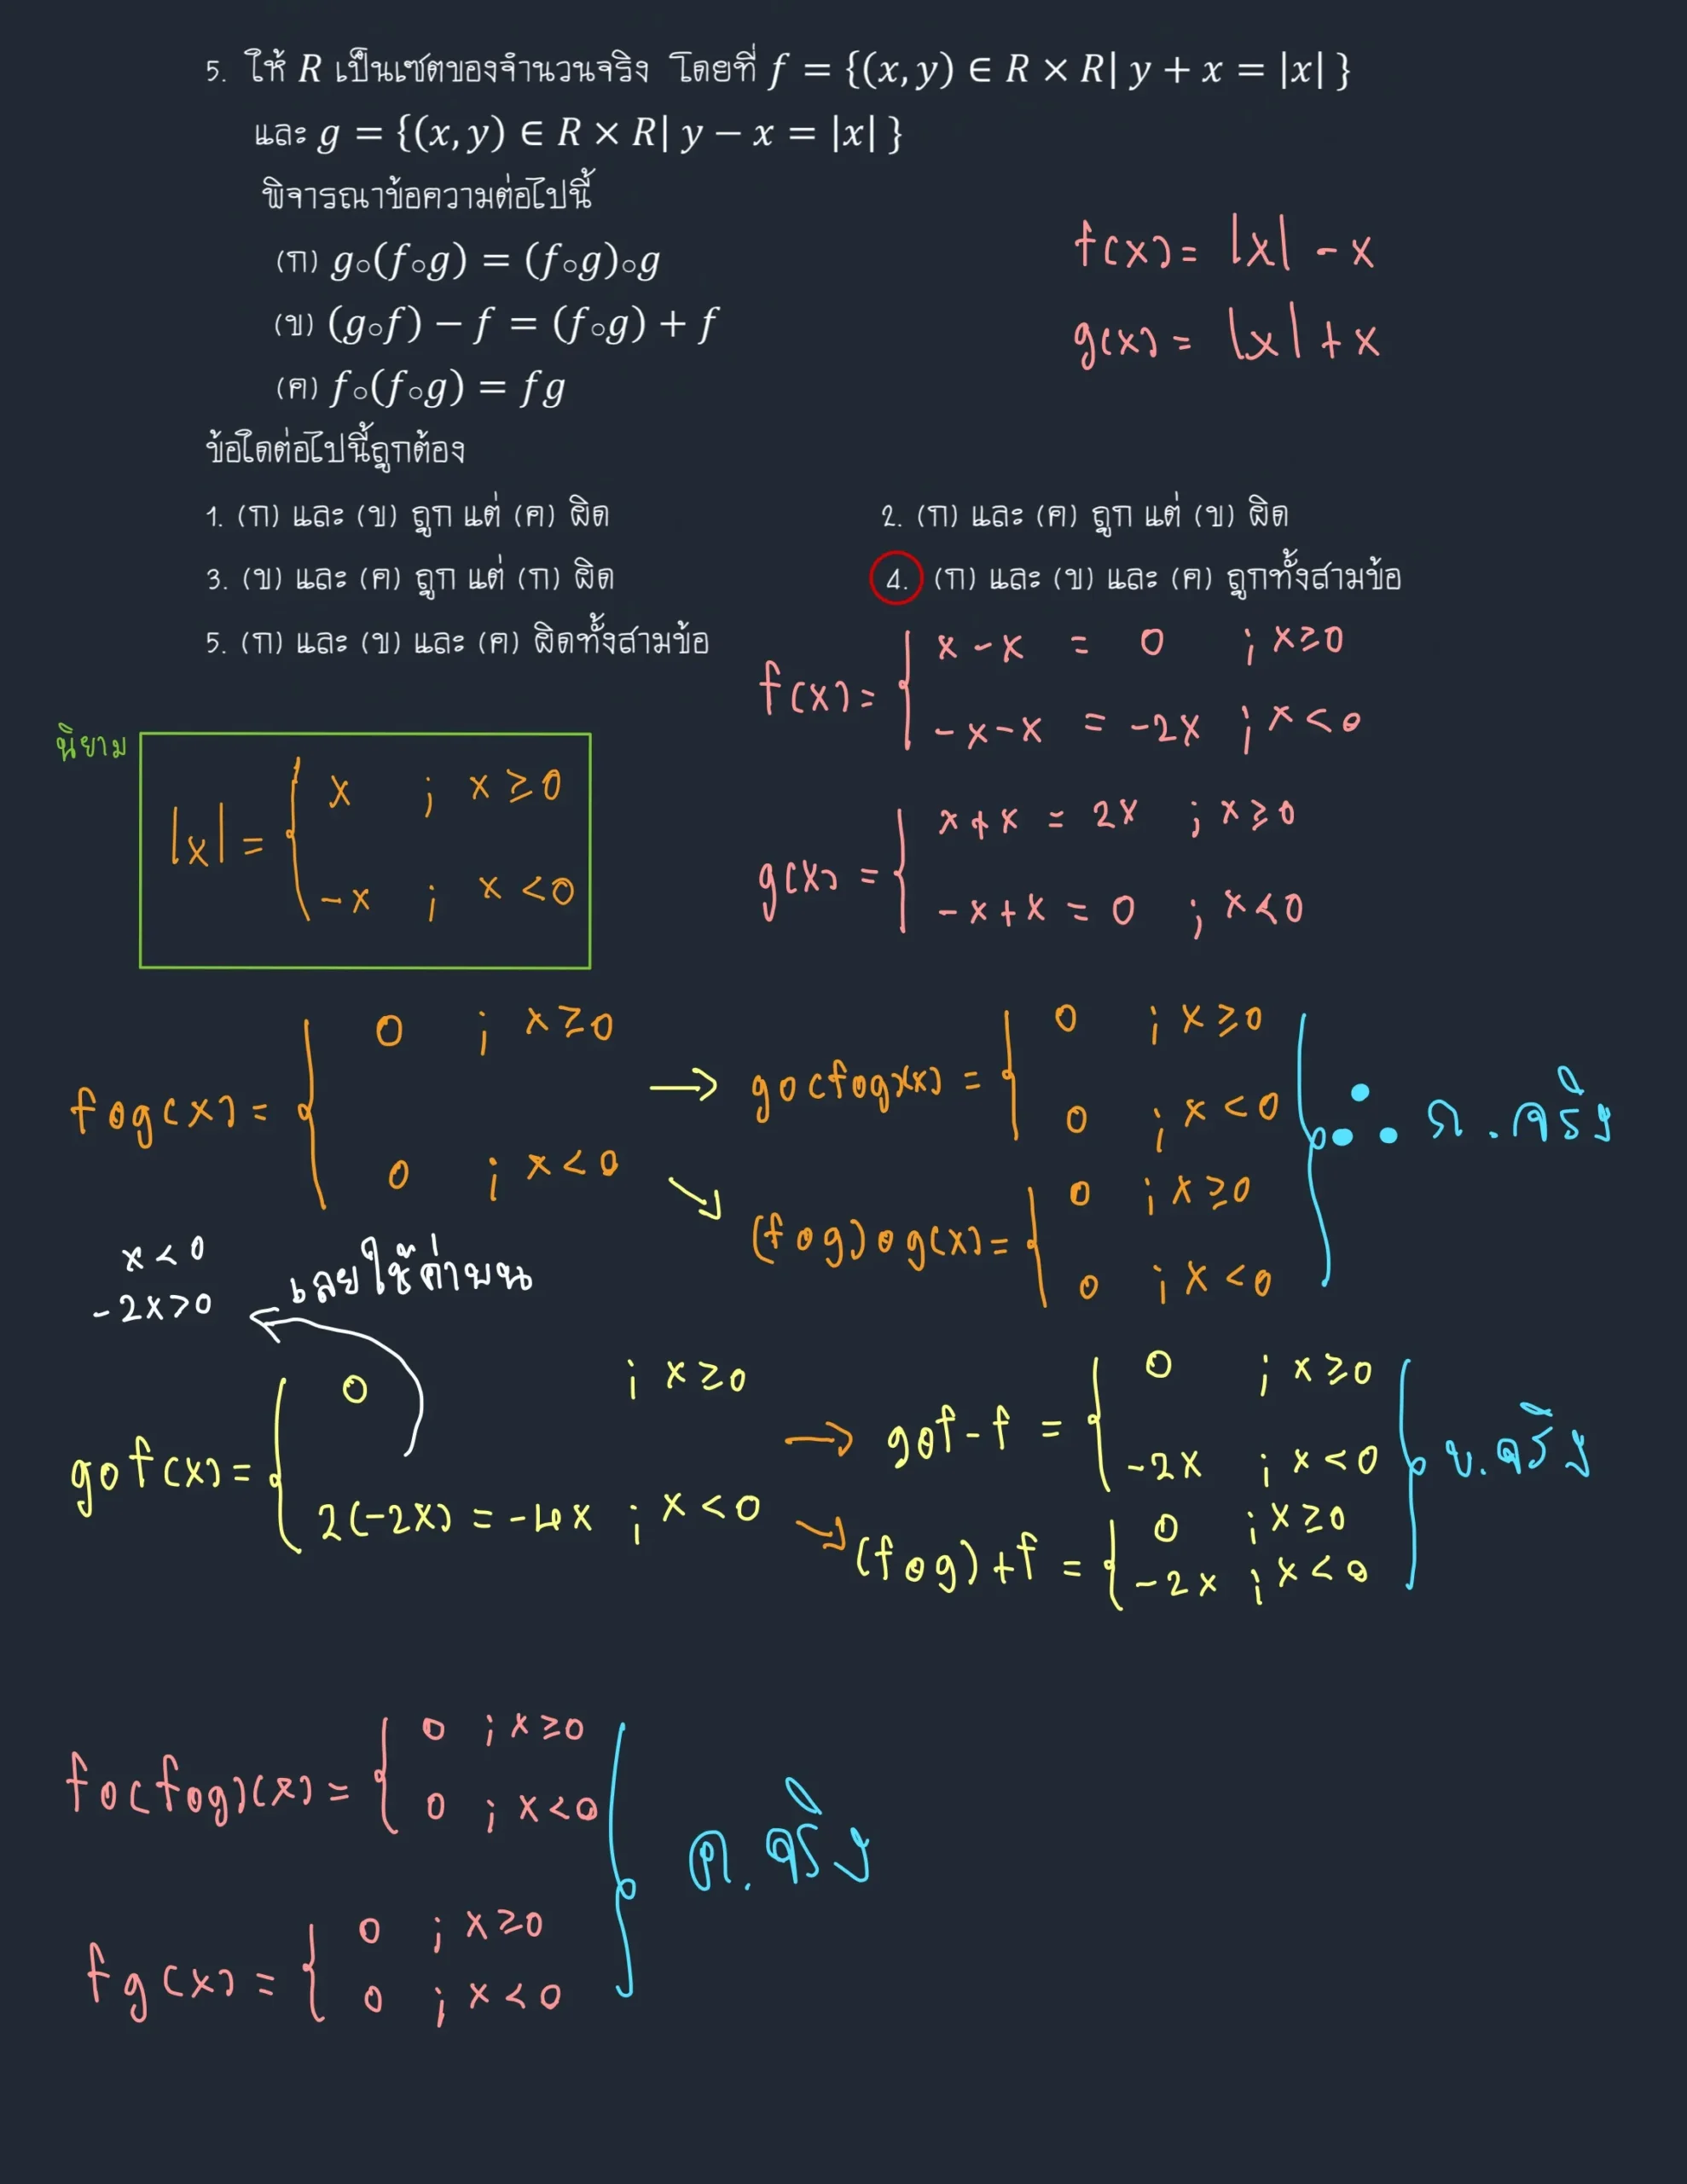 5. ให้ R เป็นเซตของจำนวนจริง โดยที่ f = {(x, y) ∈ R × R| y + x = |x| }
และ g = {(x, y) ∈ R × R| y − x = |x| }
พิจารณาข้อความต่อไปนี้
(ก) g∘(f∘g) = (f∘g)∘g
(ข) (g∘f) − f = (f∘g) + f
(ค) f∘(f∘g) = fg
f(x) = |x| - x
g(x) = |x| + x
ข้อใดต่อไปนี้ถูกต้อง
1. (ก) และ (ข) ถูก แต่ (ค) ผิด
2. (ก) และ (ค) ถูก แต่ (ข) ผิด
3. (ข) และ (ค) ถูก แต่ (ก) ผิด
4. (ก) และ (ข) และ (ค) ถูกทั้งสามข้อ
5. (ก) และ (ข) และ (ค) ผิดทั้งสามข้อ
f(x) = { x - x = 0 ; x ≥ 0
-x-x = -2x ; x < 0
นิยาม
|x| = { x ; x ≥ 0
-x ; x < 0
g(x) = { x + x = 2x ; x ≥ 0
-x + x = 0 ; x < 0
fog(x) = { 0 ; x ≥ 0
0 ; x < 0
→ go(fog)(x) = { 0 ; x ≥ 0
0 ; x < 0
(fog)og(x) = { 0 ; x ≥ 0
0 ; x < 0
∴ ก.จริง
x < 0
-2x > 0
เลยใช้ค่าบน
gof(x) = { 0 ; x ≥ 0
2(-2x) = -4x ; x < 0
→ gof - f = { 0 ; x ≥ 0
-2x ; x < 0
(fog)+f = { 0 ; x ≥ 0
-2x ; x < 0
ข.จริง
fo(fog)(x) = { 0 ; x ≥ 0
0 ; x < 0
ค.จริง
fg(x) = { 0 ; x ≥ 0
0 ; x < 0